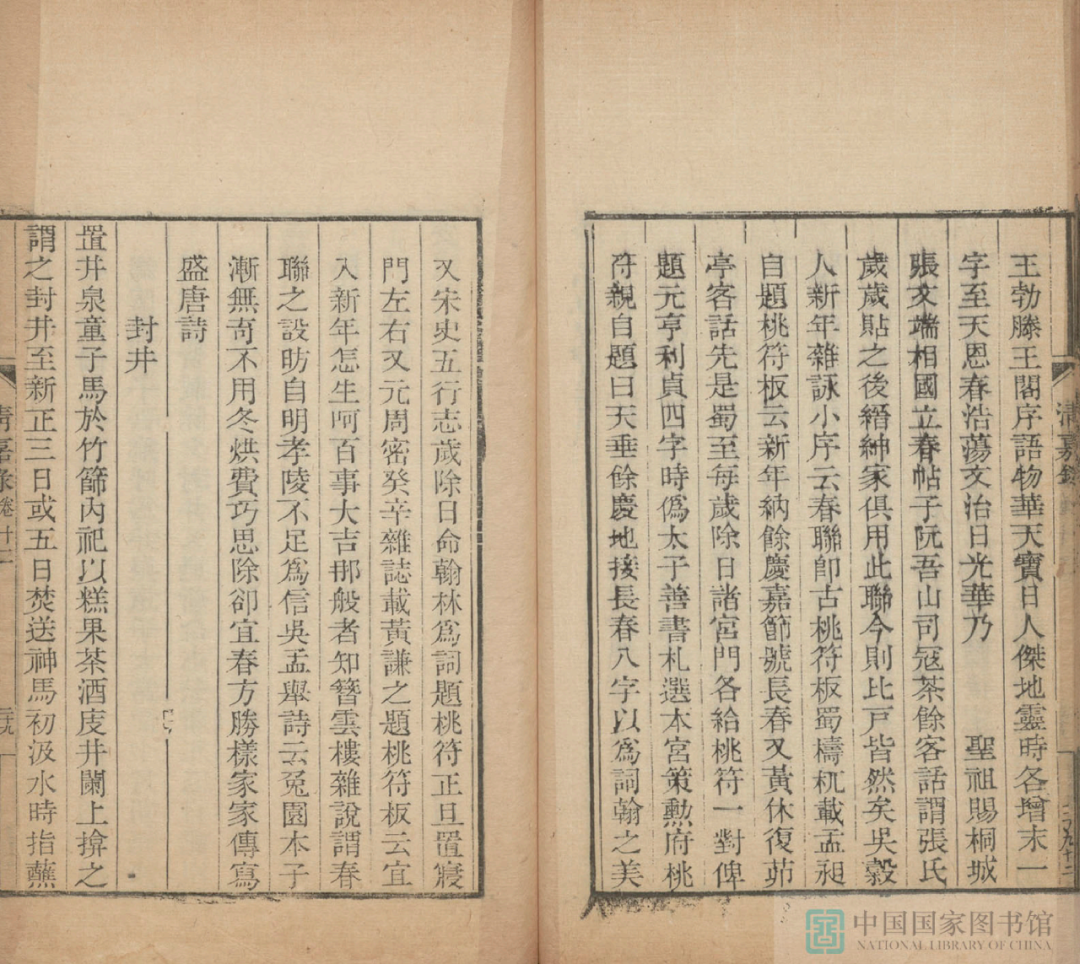 王勃滕王閣序語物華天寶日人傑地靈時各增末一
字至天恩春浩蕩文治日光華乃 聖祖賜桐城
張文端相國立春帖子阮吾山司冦茶餘客話謂張氏
歲歲貼之後縉紳家俱用此聯今則比戶皆然矣吳縠
人新年雜詠小序云春聯卽古桃符板蜀檮杌載孟昶
自題桃符板云新年納餘慶嘉節號長春又黃休復茆
亭客話先是蜀至每歲除日諸宮門各給桃符一對俾
題元亨利貞四字時僞太子善書札選本宮策勲府桃
符親自題曰天垂餘慶地接長春八字以爲詞翰之美
清嘉錄
又宋史五行志歲除日命翰林爲詞題桃符正旦置寢
門左右又元周密癸辛雜誌載黃謙之題桃符板云宜
入新年怎生呵百事大吉那般者知簪雲樓雜說謂春
聯之設昉自明孝陵不足爲信吳孟舉詩云兔園本子
漸無奇不用冬烘費巧思除卻宜春方勝樣家家傳寫
盛唐詩
封井
置井泉童子馬於竹篩內祀以糕果茶酒庋井闌上揜之
謂之封井至新正三日或五日焚送神馬初汲水時指蘸
清嘉錄 卷十二
中国国家图书馆
NATIONAL LIBRARY OF CHINA